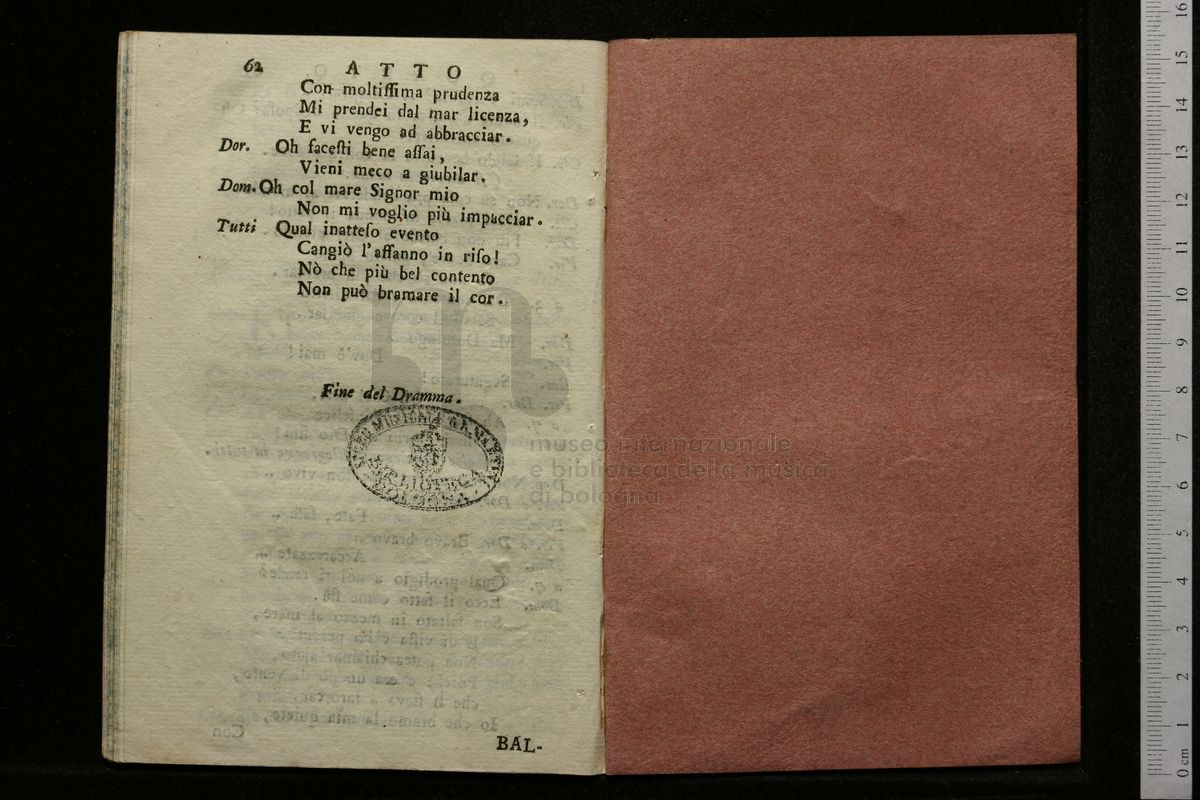 62 ATTO
Con moltiſſima prudenza
Mi prendei dal mar licenza,
E vi vengo ad abbracciar.
Dor. Oh faceſti bene aſſai,
Vieni meco a giubilar.
Dom. Oh col mare Signor mio
Non mi voglio più impacciar.
Tutti Qual inatteſo evento
Cangiò l'affanno in riſo!
Nò che più bel contento
Non può bramare il cor.
Fine del Dramma.
BIBLIOTECA
BOLOGNA
museo internazionale
e biblioteca della musica
di bologna
BAL-
0 cm 1 2 3 4 5 6 7 8 9 10 11 12 13 14 15 16